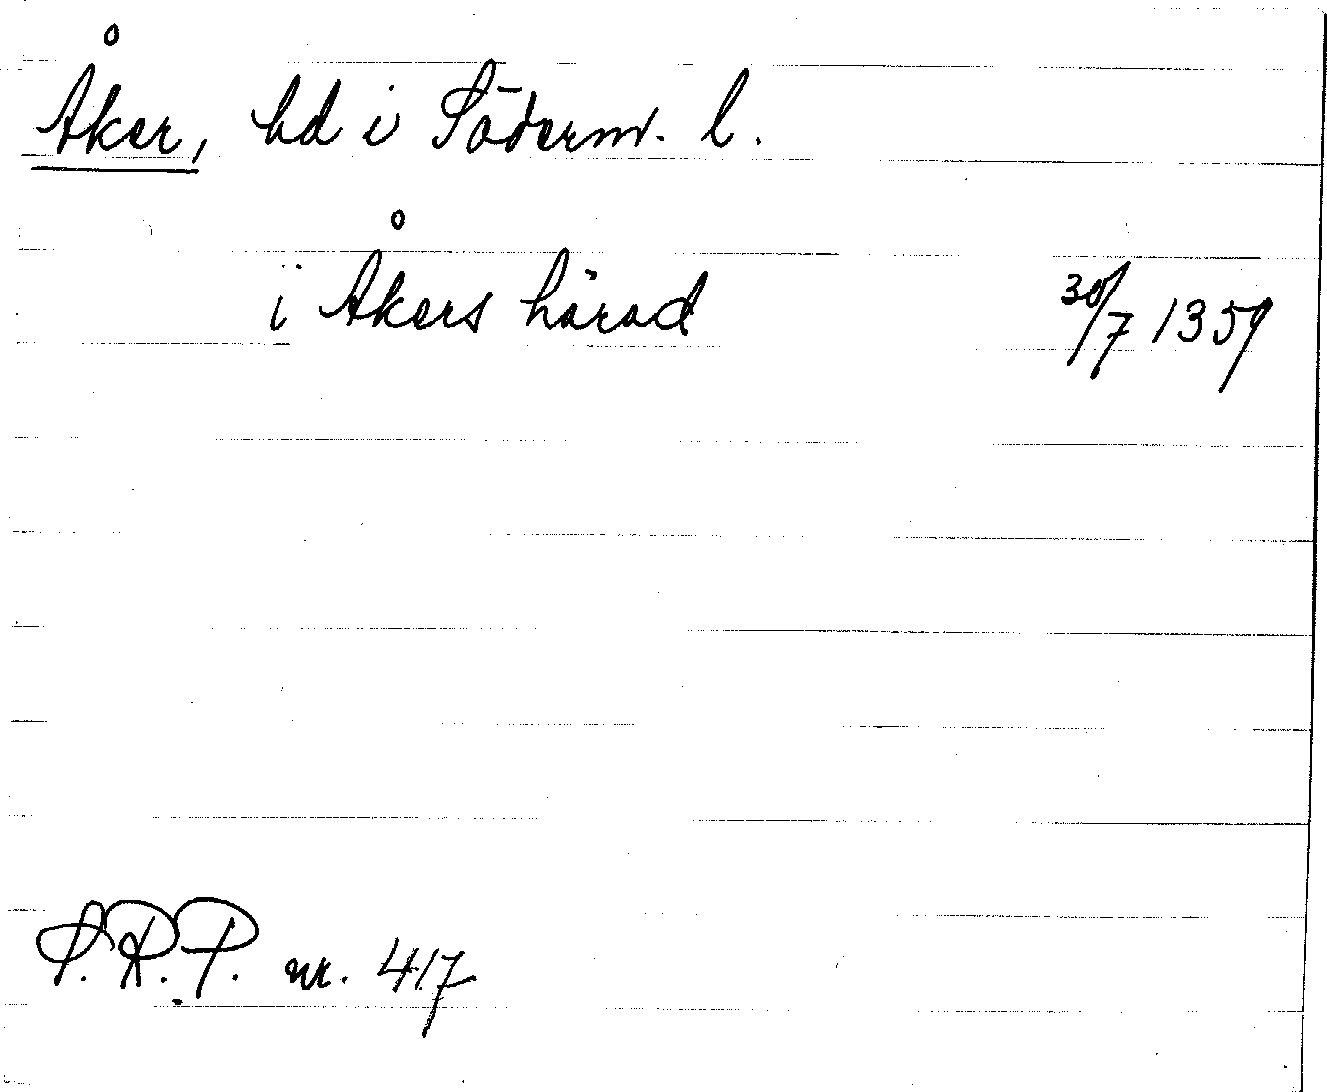 Åker, hd i Söderm. l.
i Åkers härad 30/7 1359
S.R.P. nr. 417